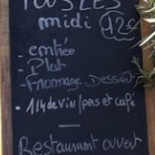 TOUS LES
midi 12€
- entrée
- Plat
- Fromage - Dessert
- 1/4 de vin / pers et café
Restaurant ouvert